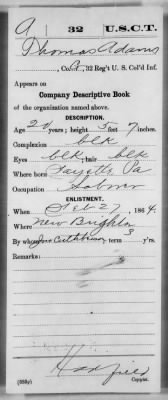 A | 32 | U.S.C.T.
Thomas Adams
, Co. A, 32 Reg't U. S. Col'd Inf.
Appears on
Company Descriptive Book
of the organization named above.
DESCRIPTION.
Age 24 years; height 5 feet 7 inches.
Complexion blk
Eyes blk ; hair blk
Where born Fayette, Pa
Occupation Laborer
ENLISTMENT.
When Feb 27, 1864.
Where New Brighton
By whom term 3 y'rs.
Remarks:
Hatfield
(383g) Copyist.